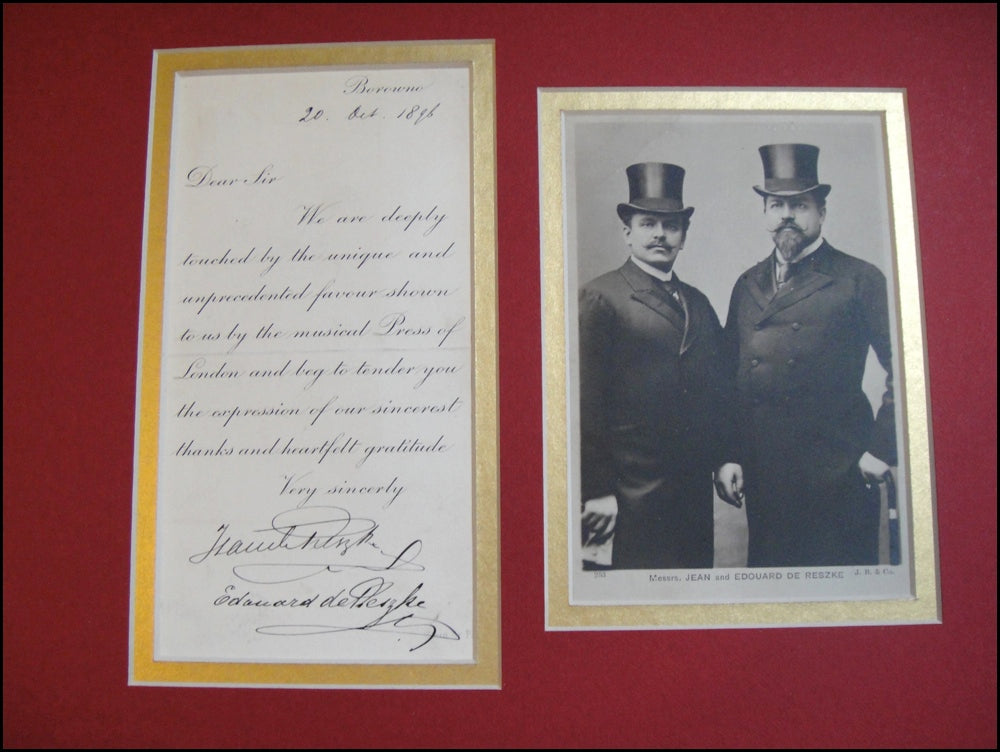 Borowno
20. Oct. 1896
Dear Sir
We are deeply
touched by the unique and
unprecedented favour shown
to us by the musical Press of
London and beg to tender you
the expression of our sincerest
thanks and heartfelt gratitude
Very sincerly
Jean de Reszke
Edouard de Reszke
253 Messrs. JEAN and EDOUARD DE RESZKE J. B. & Co.